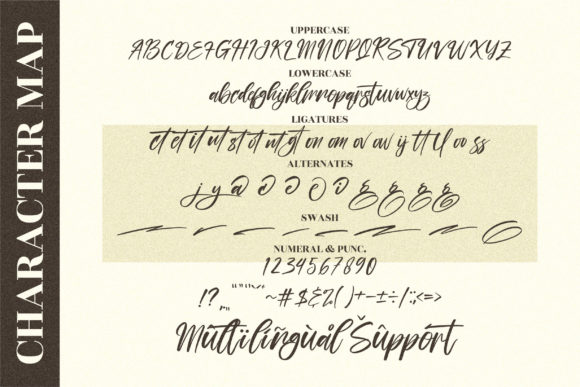 CHARACTER MAP
UPPERCASE
ABCDEFGHIJKLMNOPQRSTUVWXYZ
LOWERCASE
abcdefghijklmnopqrstuvwxyz
LIGATURES
ct et it ut st ot nt gt on om ov aw ij tt tl oo ss
ALTERNATES
j y a
SWASH
NUMERAL & PUNC.
1234567890
!? ~#$&%()+-±÷/:;<=>
Mûltïlíñgùål Šûppórt